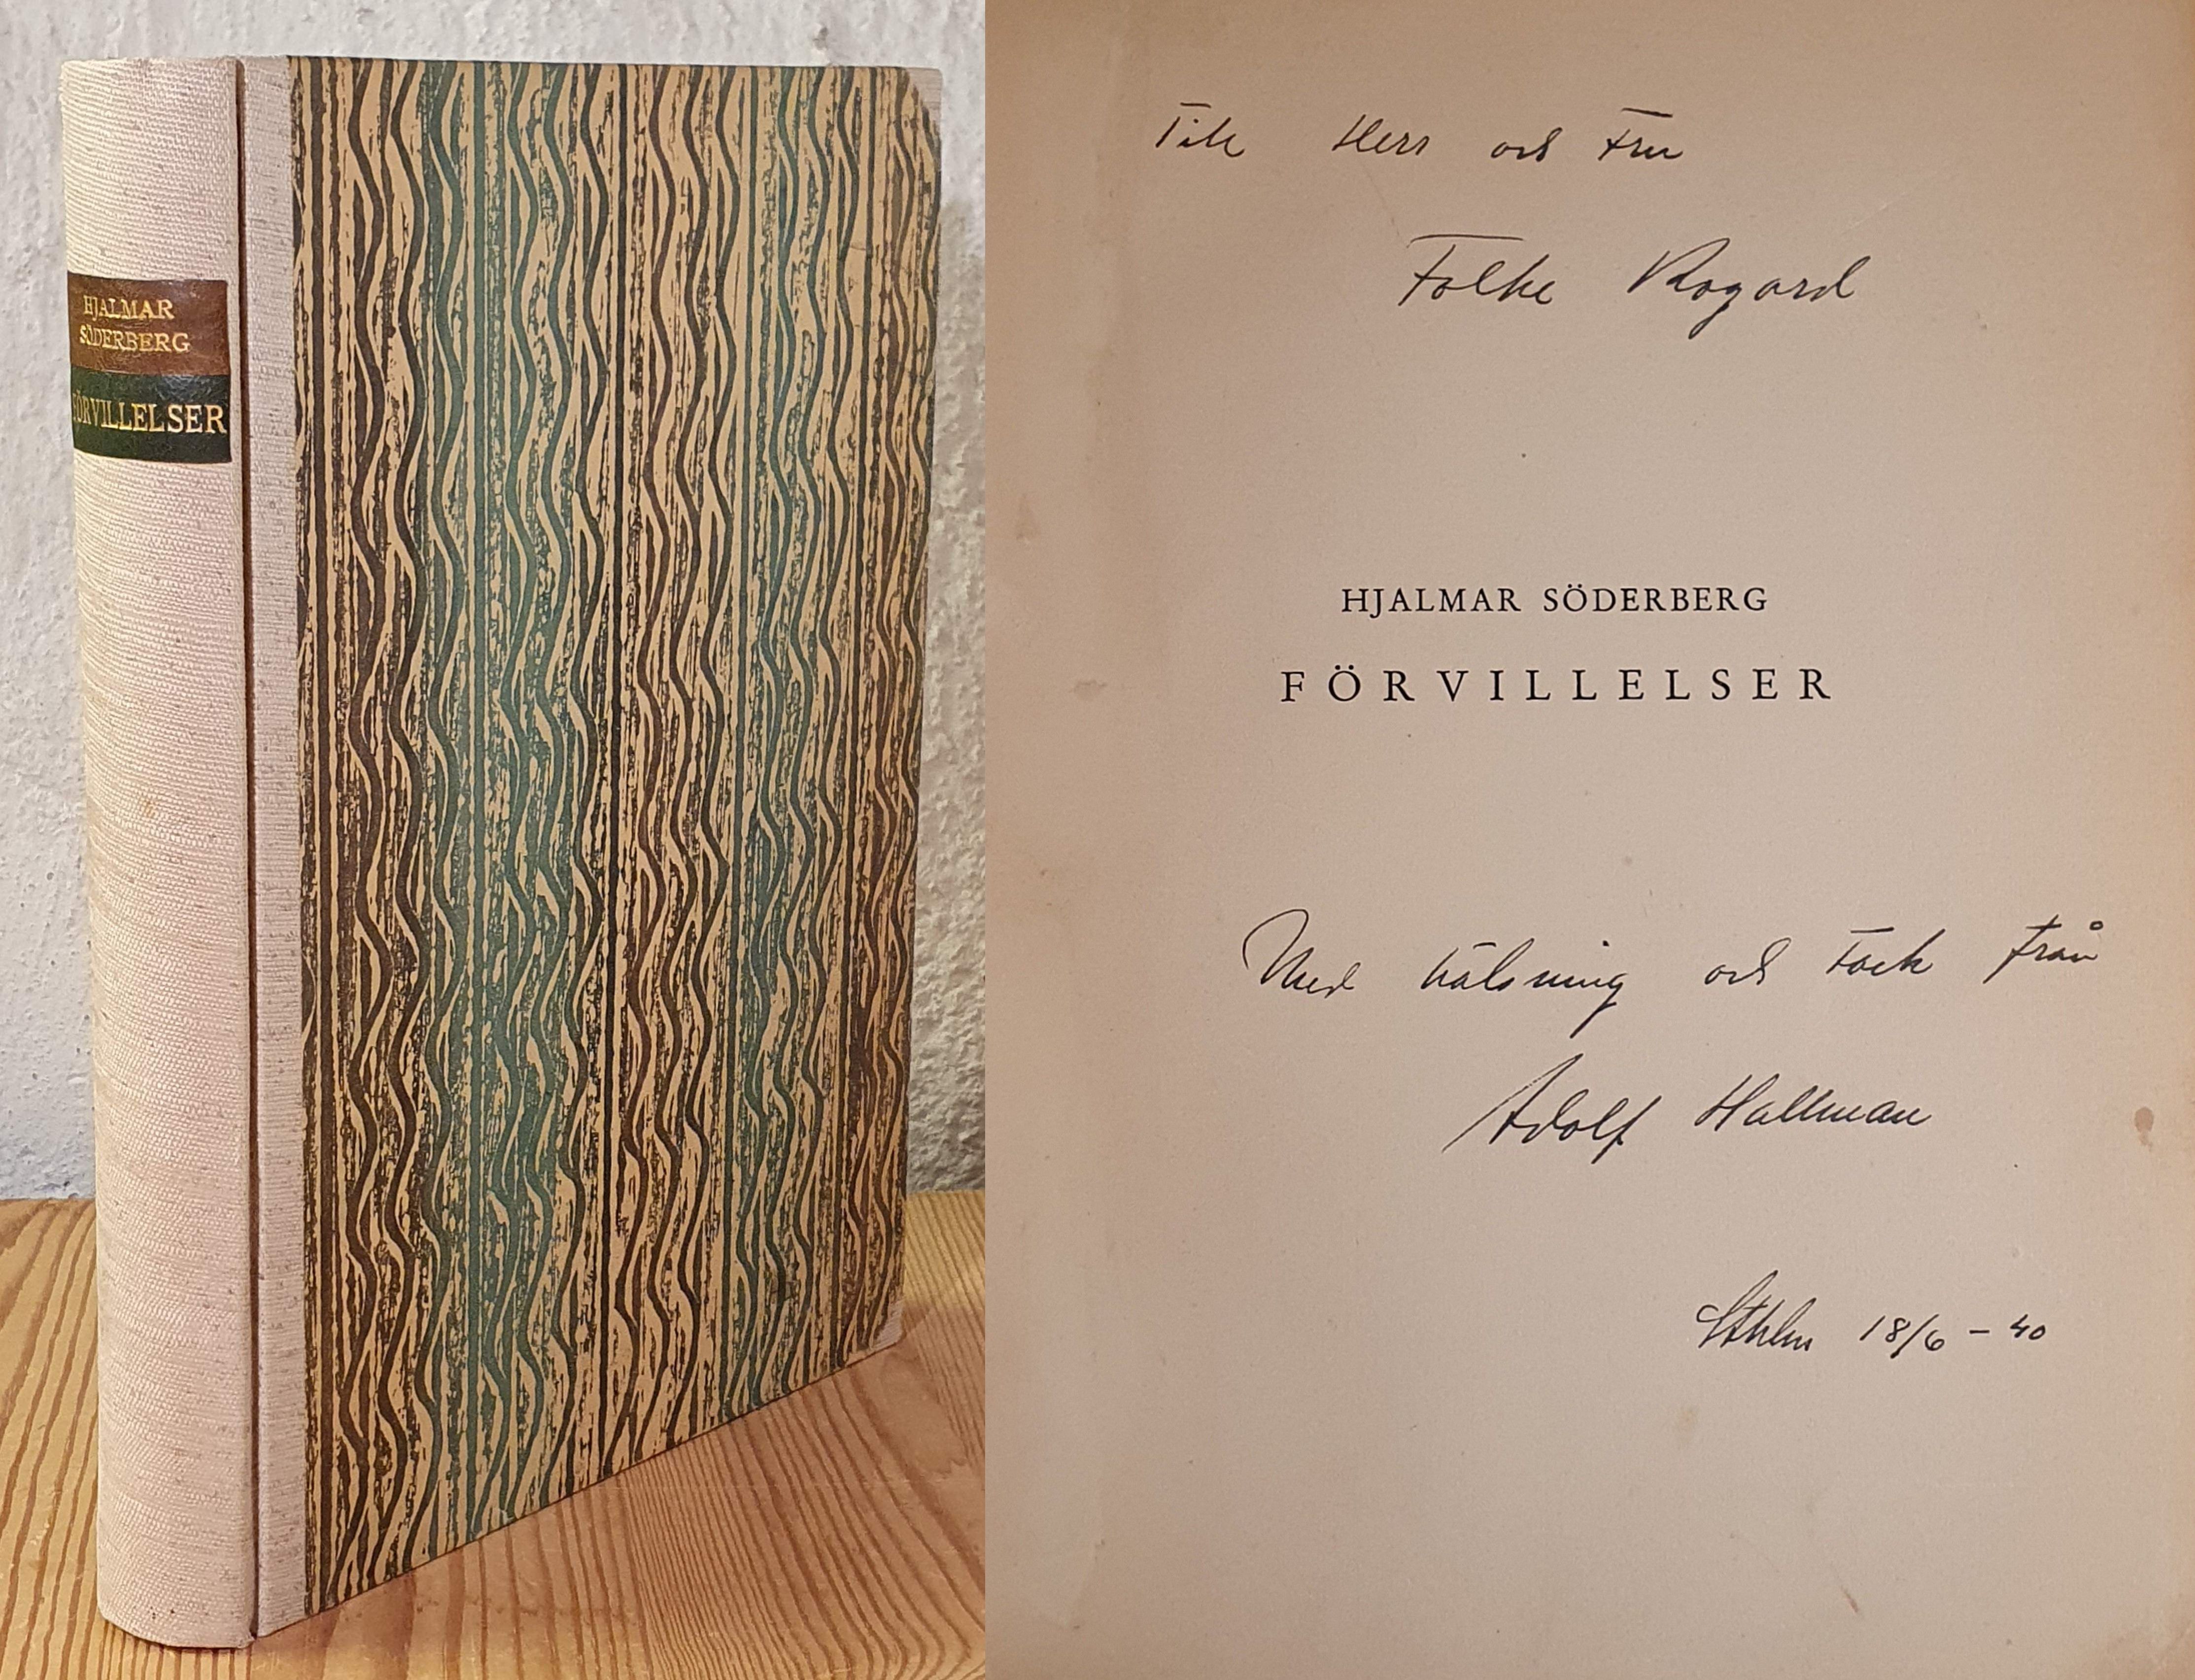 HJALMAR
SÖDERBERG
FÖRVILLELSER
Till Herr och Fru
Folke Rogard
HJALMAR SÖDERBERG
FÖRVILLELSER
Med hälsning och tack från
Adolf Hallman
Sthlm 18/6 - 40